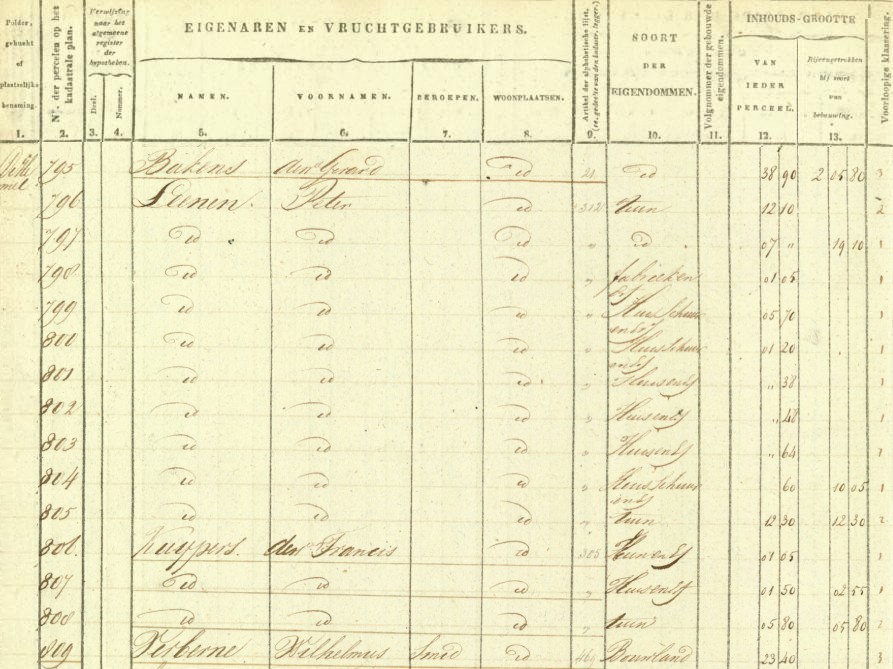 Polder, gehucht of plaatselijke benaming.
Nº. der percelen op het kadastrale plan.
Verwijzing naar het algemeene register der hypotheken.
Deel.
Nommer.
EIGENAREN EN VRUCHTGEBRUIKERS.
NAMEN.
VOORNAMEN.
BEROEPEN.
WOONPLAATSEN.
Artikel der alphabetische lijst,
SOORT DER EIGENDOMMEN.
Volgnommer der gebouwde eigendommen.
INHOUDS-GROOTTE
VAN IEDER PERCEEL.
Bijeengetrokken bij soort van bebouwing.
Voorloopige klassering.
1. 2. 3. 4. 5. 6. 7. 8. 9. 10. 11. 12. 13.
795 Bakens den Gerard id 21 id 38 90 2 05 80 3
796 Leenen Peter id 212 tuin 12 10 2
797 id id id " id 07 " 19 10 1
798 id id id " 01 05 1
799 id id id " 05 70 1
800 id id id " 01 20 1
801 id id id " " 38 1
802 id id id " " 48 1
803 id id id " " 64 1
804 id id id " 60 10 05 1
805 id id id " tuin 12 30 12 30 2
806 Kuypers den Francis id 205 01 05 1
807 id id id " 01 50 02 55 1
808 id id id " tuin 05 80 05 80 2
809 Verberne Wilhelmus Smid id Bouwland 23 40 3